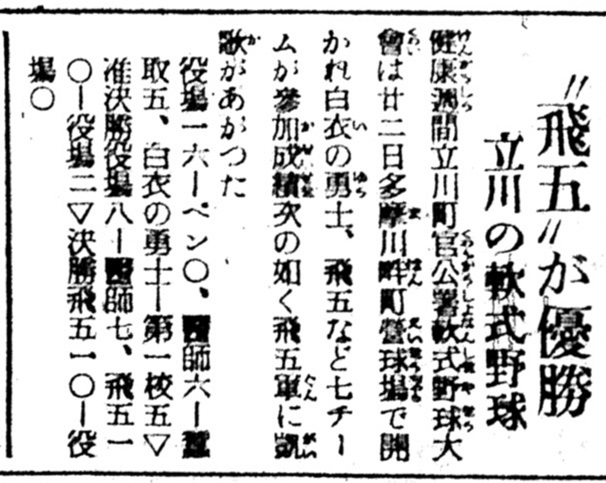 〃飛五〃が優勝
立川の軟式野球
健康週間立川町官公署軟式野球大
會は廿二日多摩川畔町營球場で開
かれ白衣の勇士、飛五など七チー
ムが參加成績次の如く飛五軍に凱
歌があがつた
役場一六―ペン〇、醫師六―警
取五、白衣の勇士―第一校五▽
准決勝役場八―醫師七、飛五一
〇―役場二▽決勝飛五一〇―役
場〇